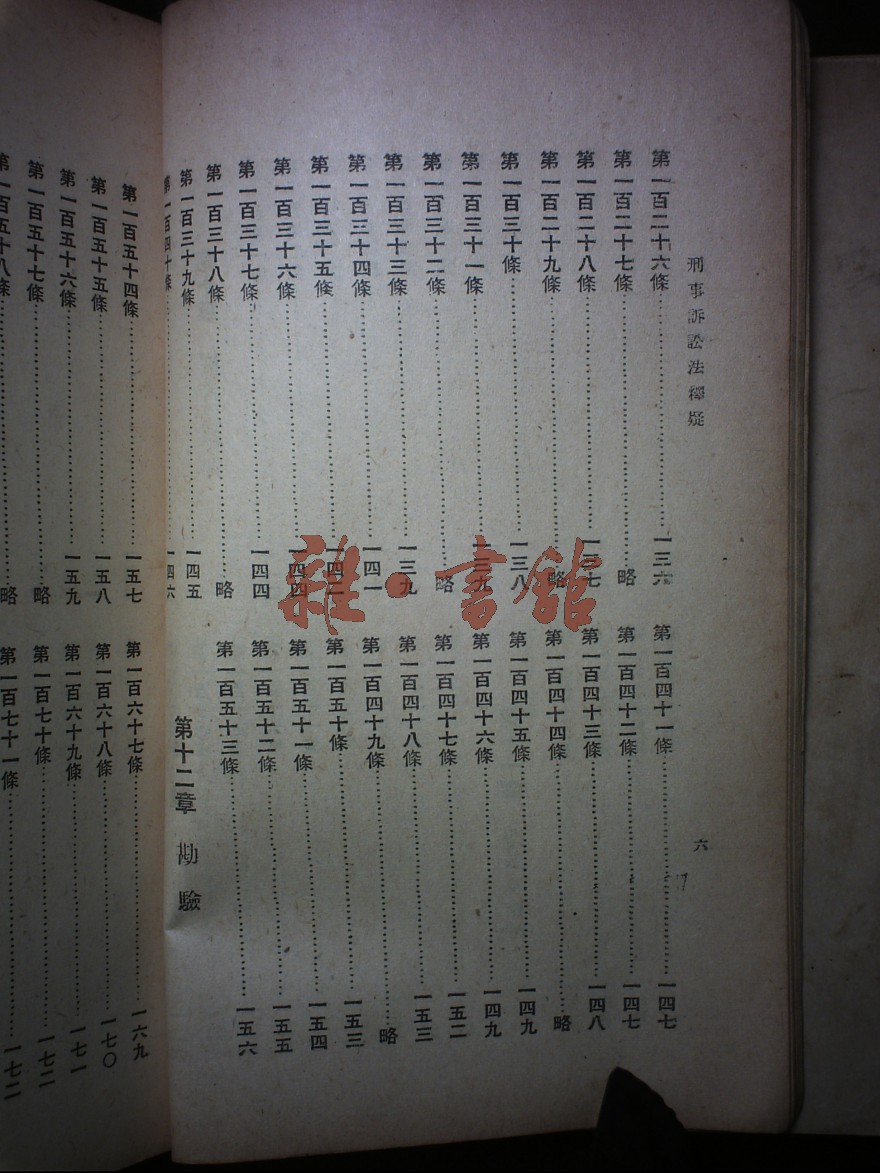 刑事訴訟法釋疑
六
第一百二十六條……一三六
第一百二十七條……略
第一百二十八條……一三七
第一百二十九條……略
第一百三十條……一三八
第一百三十一條……一三九
第一百三十二條……略
第一百三十三條……一三九
第一百三十四條……一四一
第一百三十五條……一四二
第一百三十六條……一四四
第一百三十七條……一四四
第一百三十八條……略
第一百三十九條……一四五
第一百四十條……一四六
第一百四十一條……一四七
第一百四十二條……一四七
第一百四十三條……一四八
第一百四十四條……略
第一百四十五條……一四九
第一百四十六條……一四九
第一百四十七條……一五二
第一百四十八條……一五三
第一百四十九條……略
第一百五十條……一五三
第一百五十一條……一五四
第一百五十二條……一五五
第一百五十三條……一五六
第十二章 勘驗
第一百五十四條……一五七
第一百五十五條……一五八
第一百五十六條……一五九
第一百五十七條……略
第一百五十八條……略
第一百六十七條……一六九
第一百六十八條……一七〇
第一百六十九條……一七一
第一百七十條……一七二
第一百七十一條……一七二
雜·書館